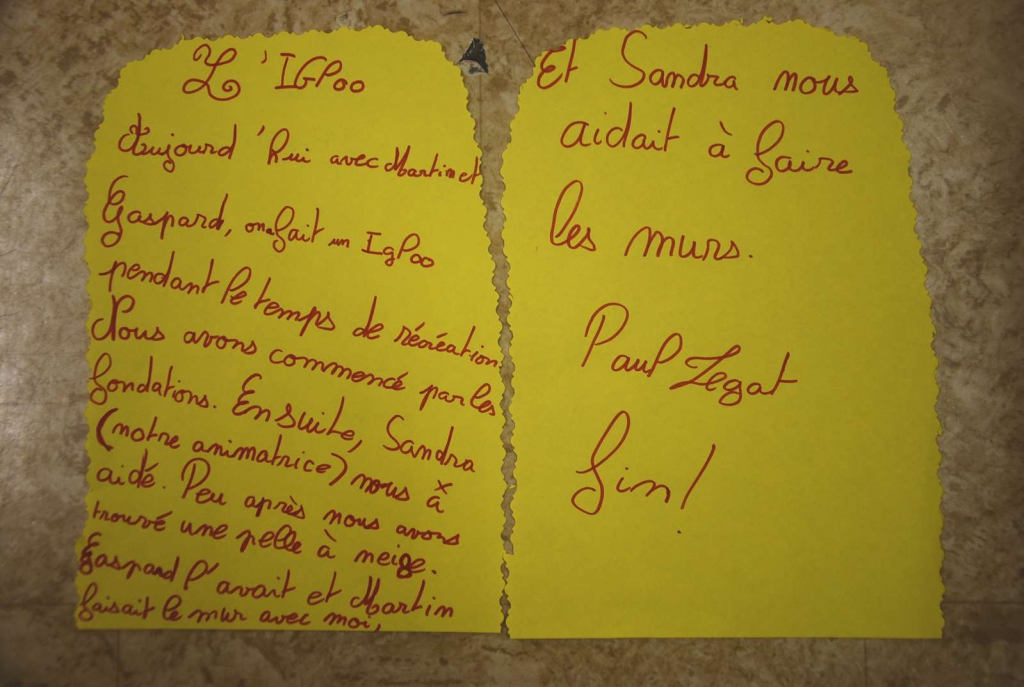 L'IGloo
Aujourd'hui avec Martin et
Gaspard, on a fait un Igloo
pendant le temps de récréation.
Nous avons commencé par les
fondations. Ensuite, Sandra
(notre animatrice) nous à
aidé. Peu après nous avons
trouvé une pelle à neige.
Gaspard l'avait et Martin
faisait le mur avec moi,
Et Sandra nous
aidait à faire
les murs.
Paul Legat
fin!